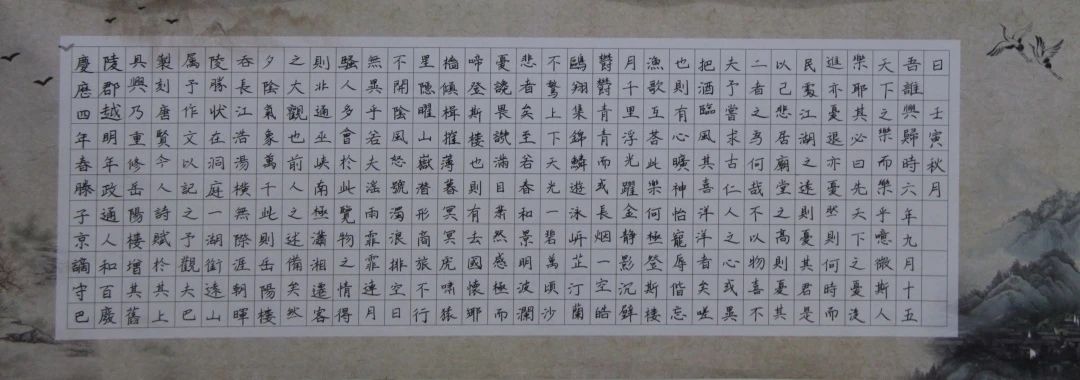 慶曆四年春滕子京謫守巴
陵郡越明年政通人和百廢
具興乃重修岳陽樓增其舊
製刻唐賢今人詩賦於其上
属予作文以記之予觀夫巴
陵勝狀在洞庭一湖銜遠山
吞長江浩湯橫無際涯朝暉
夕陰氣象萬千此則岳陽樓
之大觀也前人之述備矣然
則北通巫峽南極瀟湘遷客
騷人多會於此覽物之情得
無異乎若夫淫雨霏霏連月
不開陰風怒號濁浪排空日
星隱曜山嶽潛形商旅不行
檣傾楫摧薄暮冥冥虎嘯猿
啼登斯樓也則有去國懷鄉
憂讒畏譏滿目蕭然感極而
悲者矣至若春和景明波瀾
不驚上下天光一碧萬頃沙
鷗翔集錦鱗遊泳岸芷汀蘭
鬱鬱青青而或長烟一空皓
月千里浮光躍金静影沉璧
漁歌互答此樂何極登斯樓
也則有心曠神怡寵辱偕忘
把酒臨風其喜洋洋者矣嗟
夫予嘗求古仁人之心或異
二者之為何哉不以物喜不
以己悲居廟堂之高則憂其
民處江湖之遠則憂其君是
進亦憂退亦憂然則何時而
樂耶其必曰先天下之憂後
天下之樂而樂乎噫微斯人
吾誰與歸時六年九月十五
日 壬寅秋月